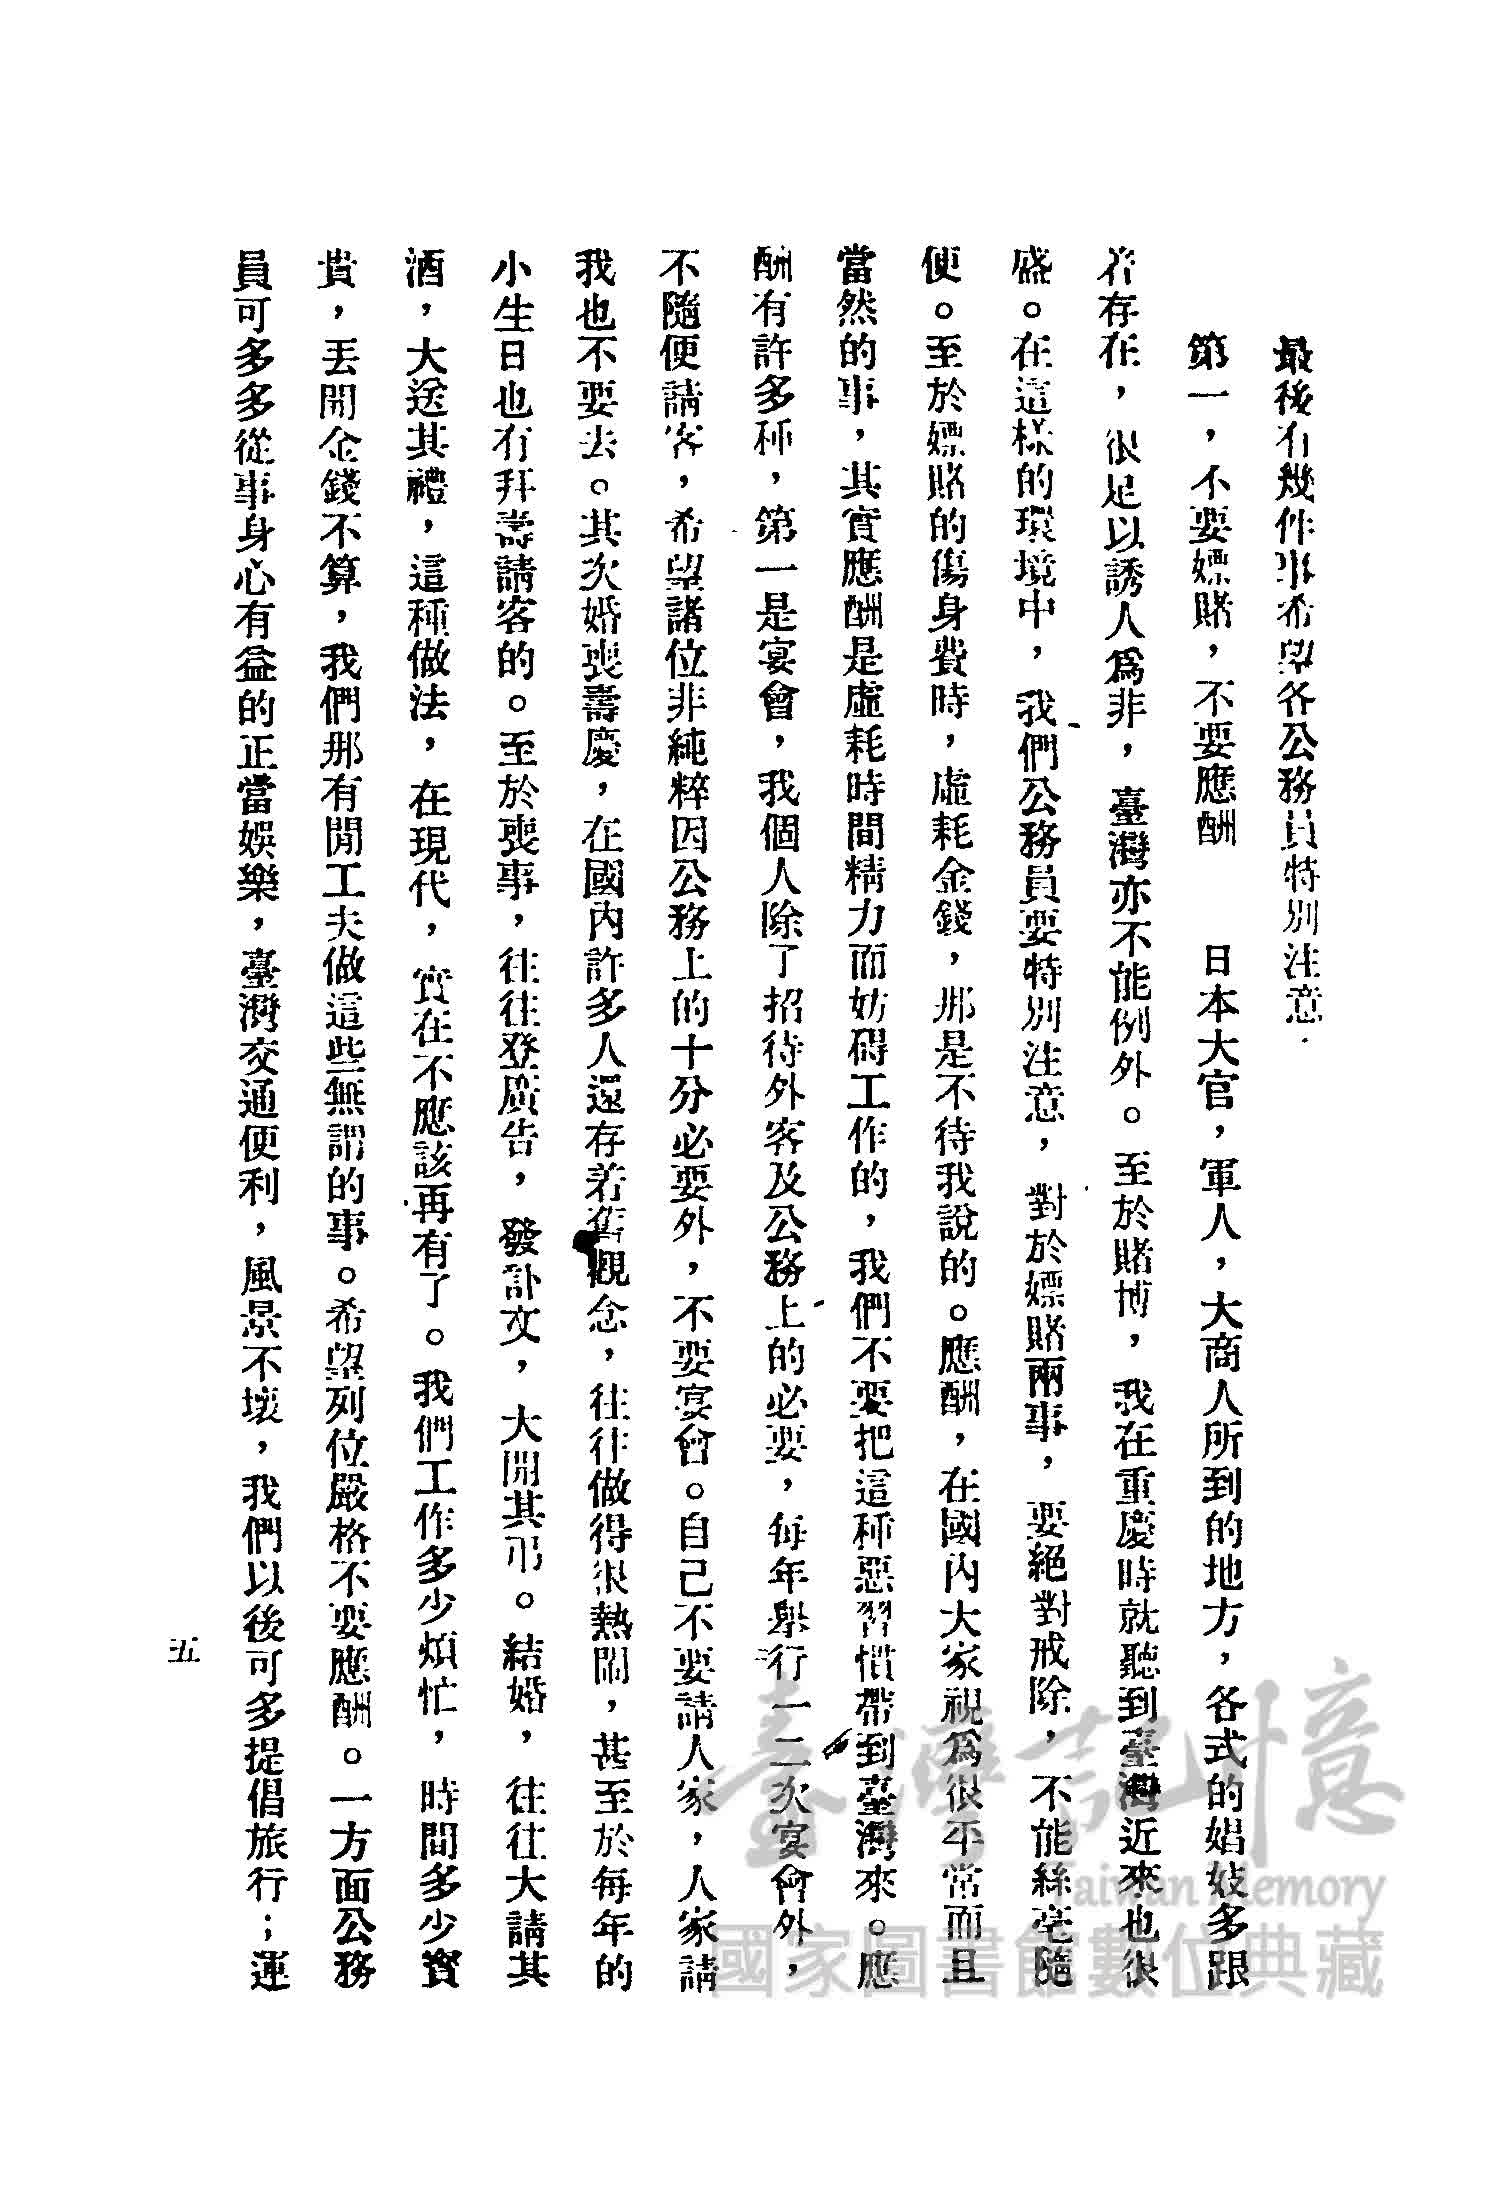 最後有幾件事希望各公務員特別注意．
第一，不要嫖賭，不要應酬　　日本大官，軍人，大商人所到的地方，各式的娼妓多跟
着存在，很足以誘人爲非，臺灣亦不能例外。至於賭博，我在重慶時就聽到臺灣近來也很
盛。在這樣的環境中，我們公務員要特別注意，對於嫖賭兩事，要絕對戒除，不能絲毫隨
便。至於嫖賭的傷身費時，虛耗金錢，那是不待我說的。應酬，在國內大家視爲很平常而且
當然的事，其實應酬是虛耗時間精力而妨碍工作的，我們不要把這種惡習慣帶到臺灣來。應
酬有許多種，第一是宴會，我個人除了招待外客及公務上的必要，每年舉行一二次宴會外，
不隨便請客，希望諸位非純粹因公務上的十分必要外，不要宴會。自己不要請人家，人家請
我也不要去。其次婚喪壽慶，在國內許多人還存着舊觀念，往往做得很熱鬧，甚至於每年的
小生日也有拜壽請客的。至於喪事，往往登廣告，發訃文，大開其弔。結婚，往往大請其
酒，大送其禮，這種做法，在現代，實在不應該再有了。我們工作多少煩忙，時間多少寳
貴，丟開金錢不算，我們那有閒工夫做這些無謂的事。希望列位嚴格不要應酬。一方面公務
員可多多從事身心有益的正當娛樂，臺灣交通便利，風景不壞，我們以後可多提倡旅行；運
五
臺灣記憶
Taiwan Memory
國家圖書館數位典藏